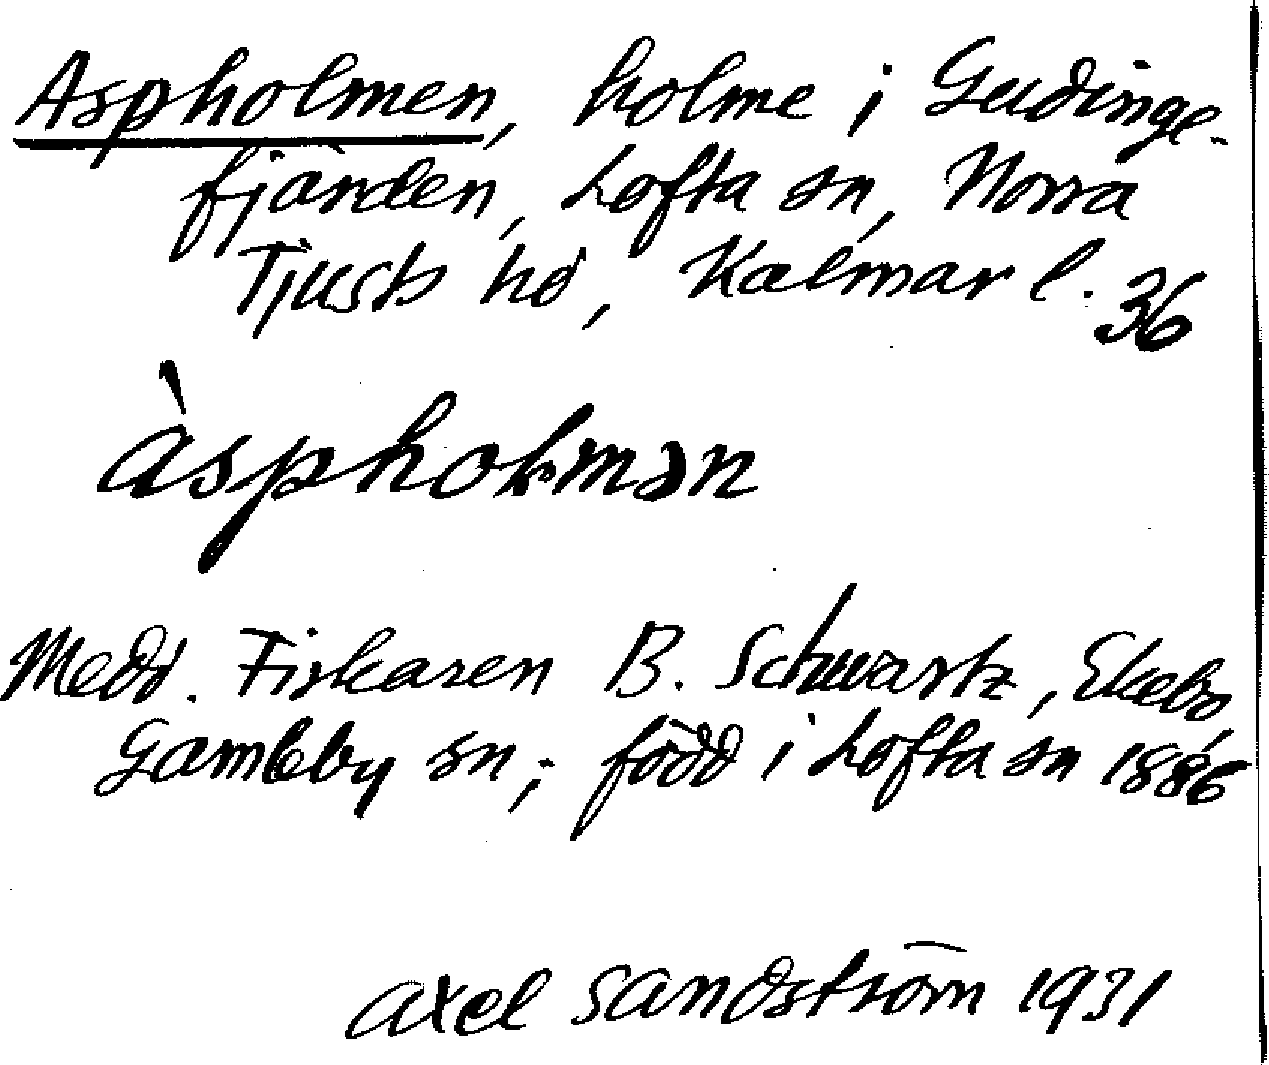 Aspholmen, holme i Gudinge-
fjärden, Lofta sn, Norra
Tjusts hd, Kalmar l. 36
àspholmən
Medd. Fiskaren B. Schwartz, Ekebo,
Gamleby sn; född i Lofta sn 1886
Axel Sandström 1931